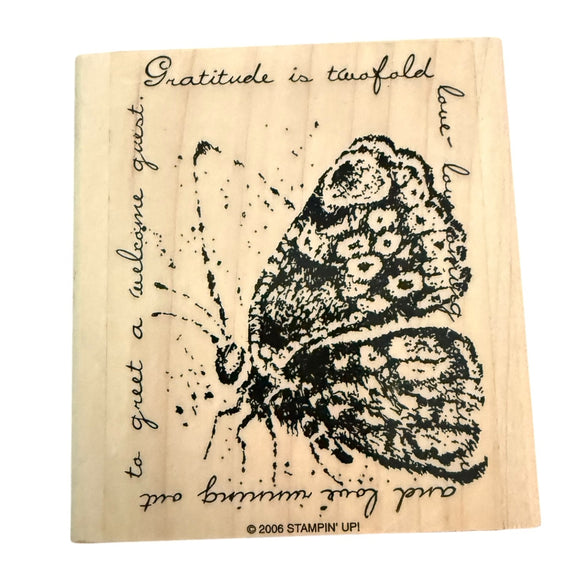 Gratitude is twofold
love- love coming
and love running out
to greet a welcome guest.
© 2006 STAMPIN' UP!